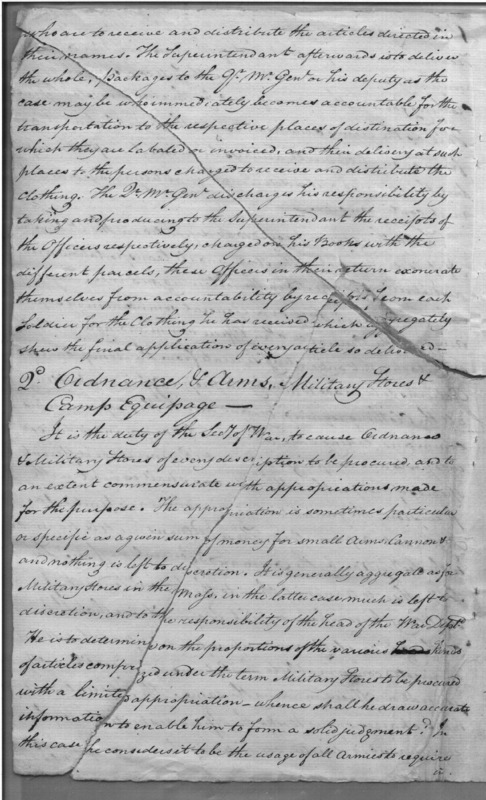 who are to receive and distribute the articles directed in
their names. The Superintendant afterwards is to deliver
the whole, Packages to the Qr. Mr. Genl. or his deputy as the
case may be who immediately becomes accountable for the
transportation to the respective places of destination for
which they are labaled or invoiced, and their delivery at such
places to the persons charged to receive and distribute the
Clothing. The Qr. Mr. Genl. discharges his responsibility by
taking and producing to the Superintendant the receipts of
the Officers respectively, charged on his Books with the
different parcels, these Officers in their return exonerate
themselves from accountability by receipts from each
Soldier for the Clothing he has received which aggregately
shew the final application of every article so delivered —
2d. Ordnance, & Arms, Military Stores &
Camp Equipage —
It is the duty of the Secy. of War, to cause Ordnance
& Military Stores of every description to be procured, and to
an extent commensurate with appropriations, made
for the purpose. The appropriation is sometimes particular
or specific as a given sum of money for small Arms, Cannon &
and nothing is left to discretion. It is generally aggregate as for
Military Stores in the Mass, in the latter case much is left to
discretion, and to the responsibility of the head of the War Dept.
He is to determine on the proportions of the various kinds
of articles comprized under the term Military Stores to be procured
with a limited appropriation — whence shall he draw accurate
information to enable him to form a solid judgment? In
this case he considers it to be the usage of all Armies to require